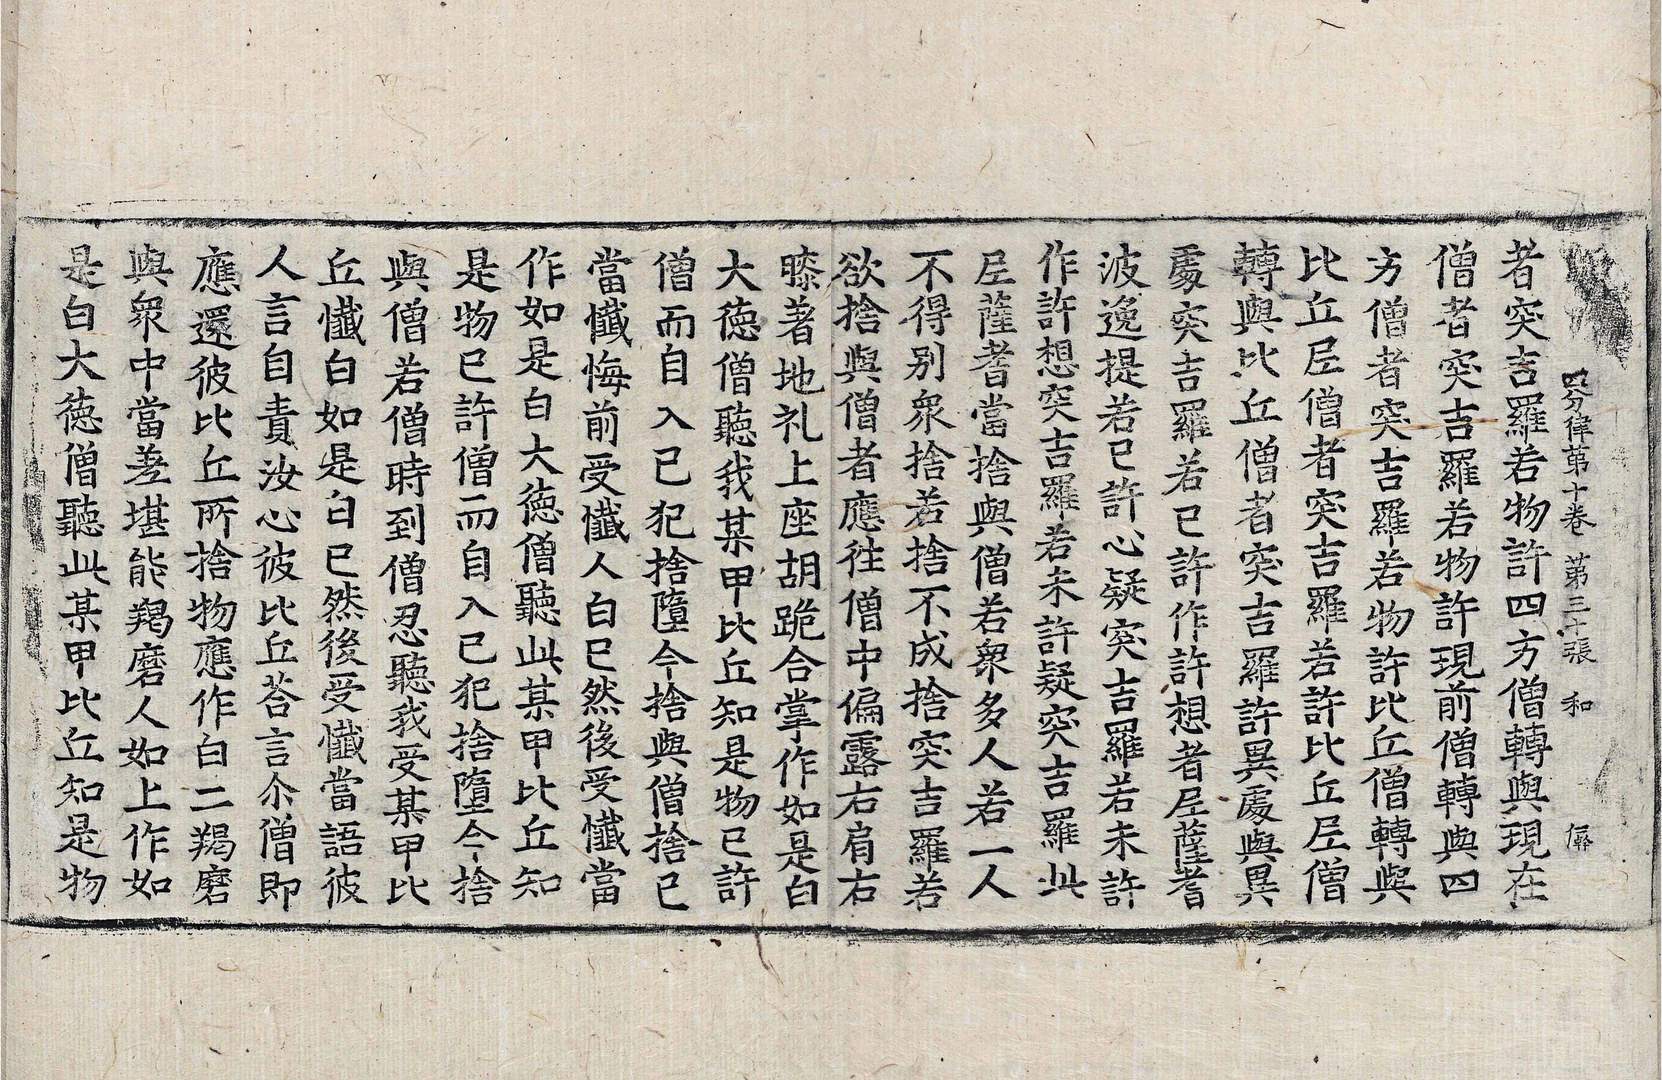 四分律第十卷 第三十張 和
者突吉羅若物許四方僧轉與現在
僧者突吉羅若物許現前僧轉與四
方僧者突吉羅若物許比丘僧轉與
比丘尼僧者突吉羅若許比丘尼僧
轉與比丘僧者突吉羅許異處與異
處突吉羅若已許作許想者尼薩耆
波逸提若已許心疑突吉羅若未許
作許想突吉羅若未許疑突吉羅此
尼薩耆當捨與僧若衆多人若一人
不得別衆捨若捨不成捨突吉羅若
欲捨與僧者應往僧中偏露右肩右
膝著地礼上座胡跪合掌作如是白
大德僧聽我某甲比丘知是物已許
僧而自入已犯捨墮今捨與僧捨已
當懺悔前受懺人白已然後受懺當
作如是白大德僧聽此某甲比丘知
是物已許僧而自入已犯捨墮今捨
與僧若僧時到僧忍聽我受某甲比
丘懺白如是白已然後受懺當語彼
人言自責汝心彼比丘荅言尒僧即
應還彼比丘所捨物應作白二羯磨
與衆中當差堪能羯磨人如上作如
是白大德僧聽此某甲比丘知是物